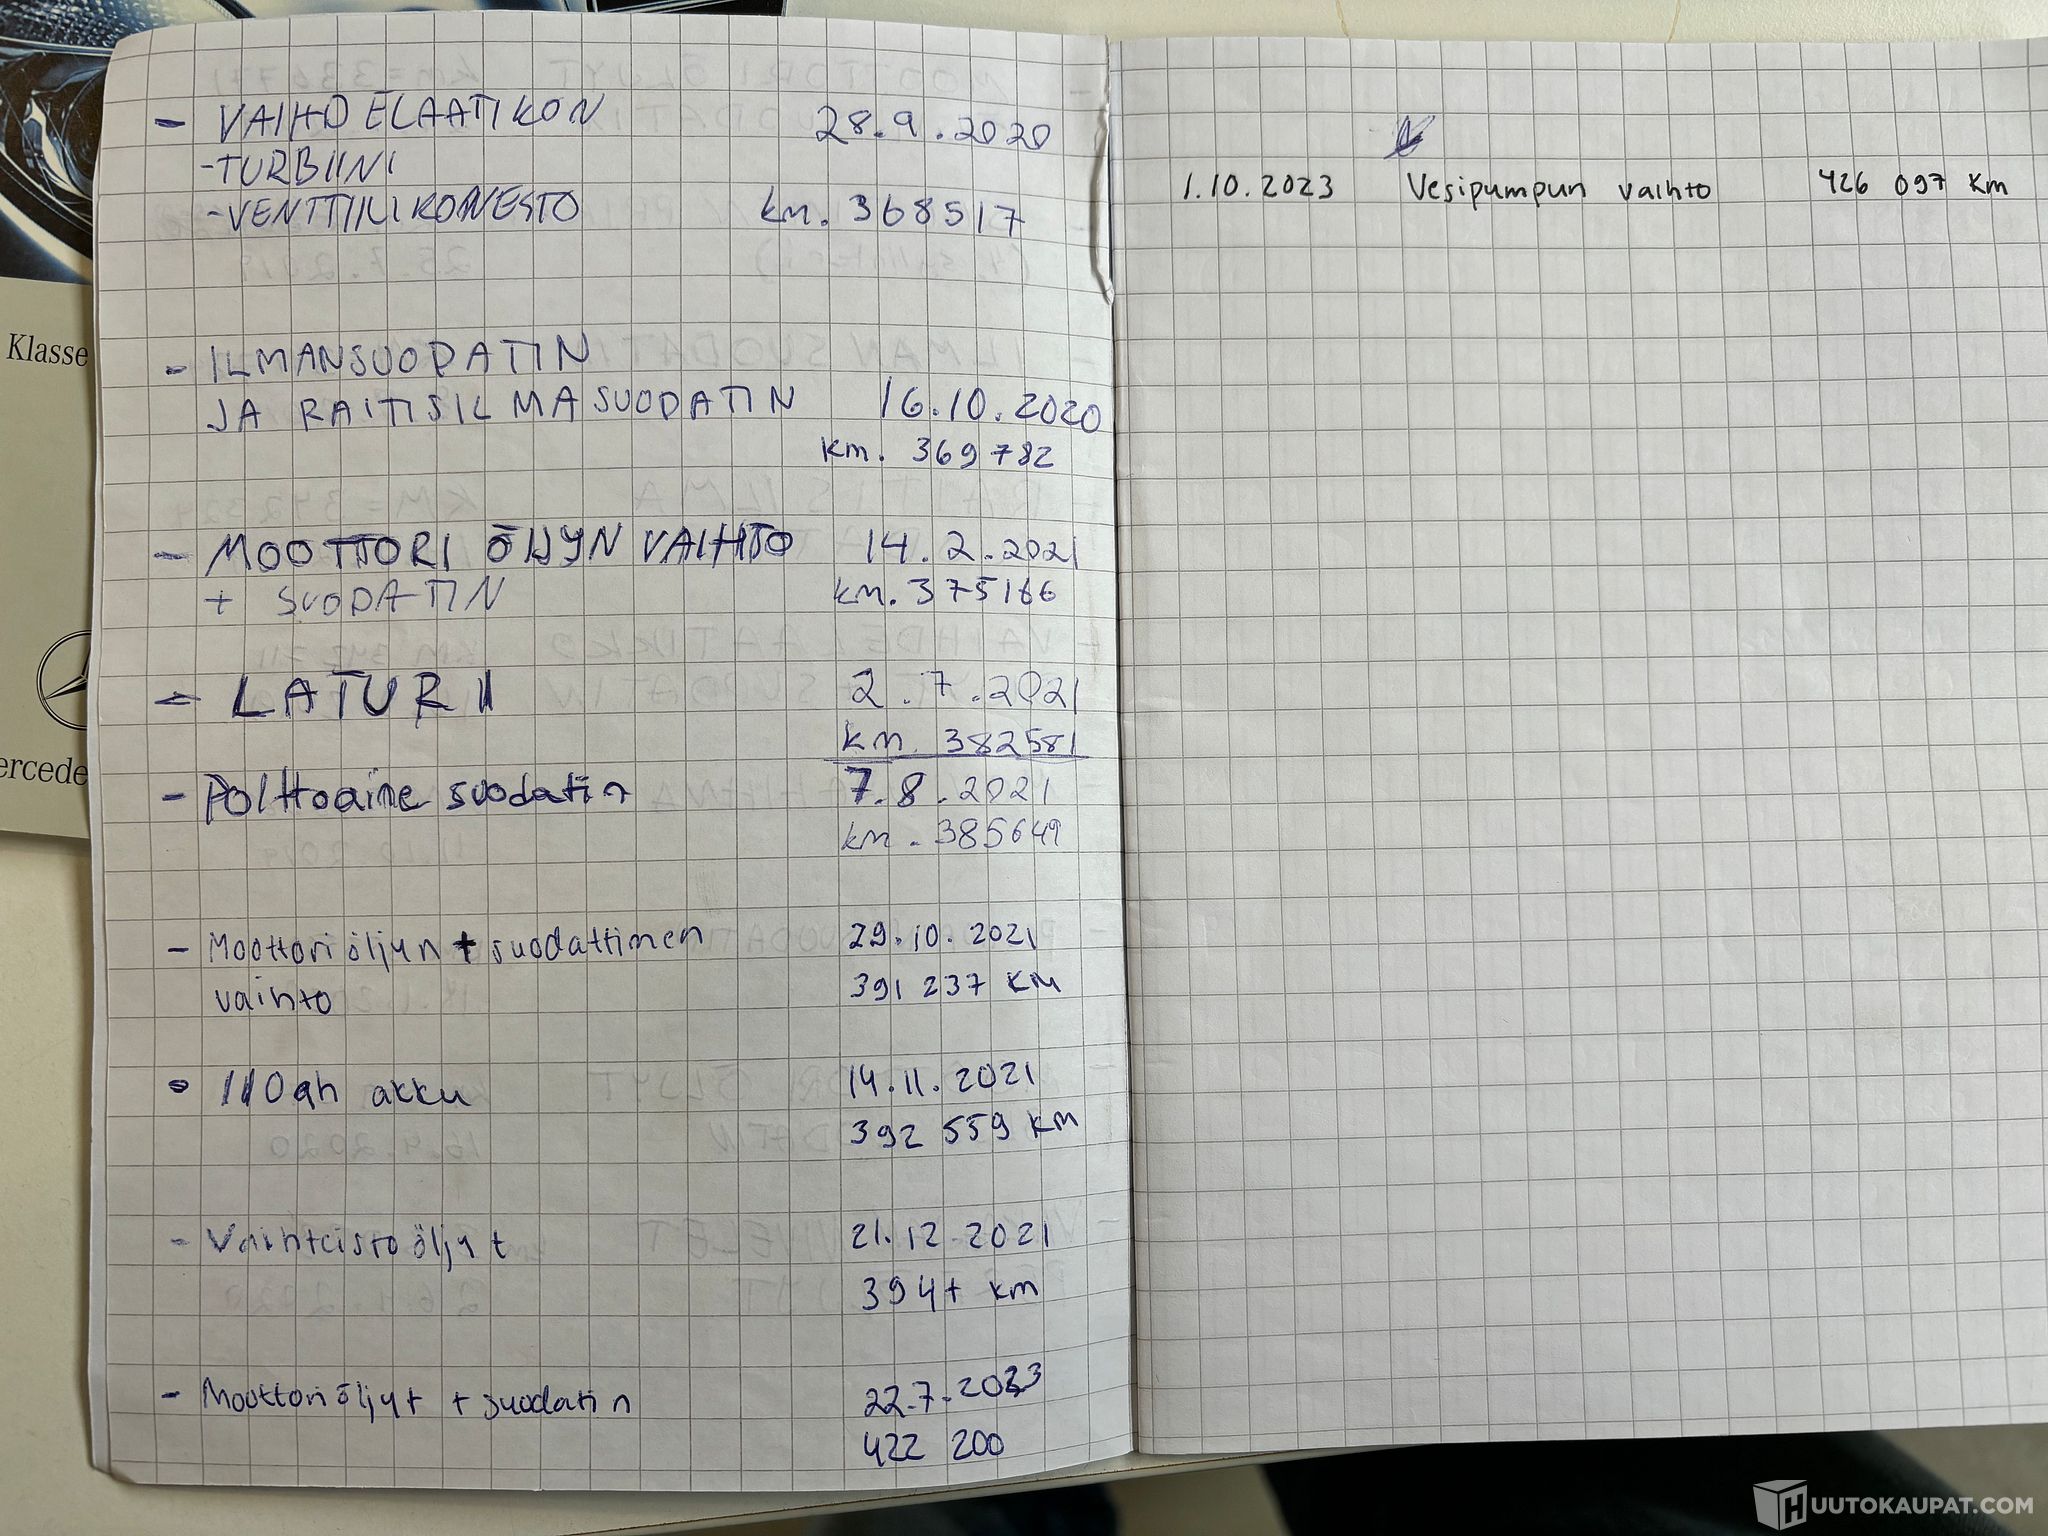 - VAIHDELAATIKON 28.9.2020
-TURBIINI
-VENTTIILIKONEISTO km. 368517
- ILMANSUODATIN
JA RAITISILMASUODATIN 16.10.2020
km. 369782
- MOOTTORI ÖLJYN VAIHTO 14.2.2021
+ SUODATIN km. 375166
- LATURI 2.7.2021
km. 382581
- Polttoaine suodatin 7.8.2021
km. 385649
- Moottoriöljyn + suodattimen 29.10.2021
vaihto 391 237 KM
• 110ah akku 14.11.2021
392 559 KM
- Vaihteistoöljyt 21.12 2021
394t km
- Moottoriöljyt + suodatin 22.7.2023
422 200
1.10.2023 Vesipumpun vaihto 426 097 Km
Klasse
ercede
HUUTOKAUPAT.COM